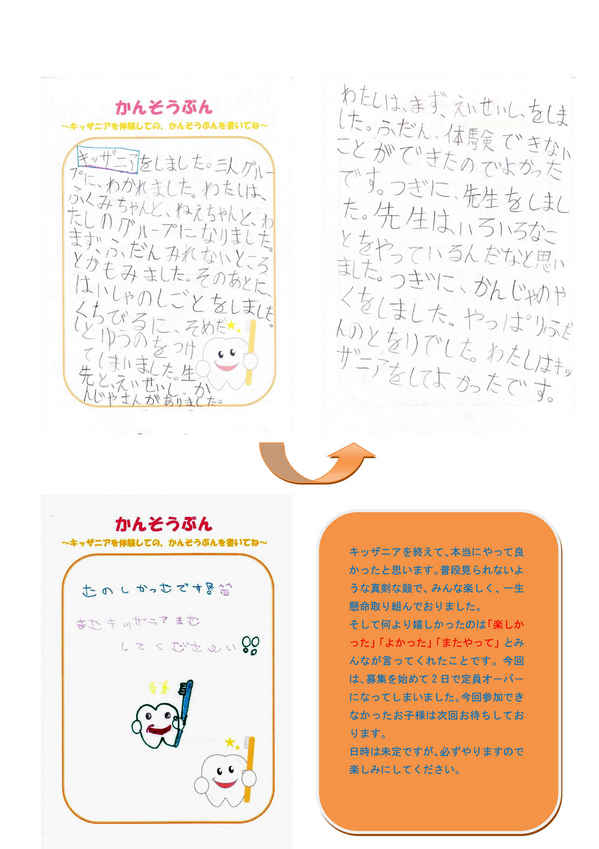 かんそうぶん
～キッザニアを体験しての、かんそうぶんを書いてね～
キッザニアをしました。三人グルー
プに、わかれました。わたしは、
ふくみちゃんと、ねえちゃんと、わ
たしのグループになりました。
まず、ふだんみれないところ
とかもみました。そのあとに、
はいしゃのしごとをしました。
くちびるに、そめだ
しとゆうのをつけ
てしまいました。生
先と、えいせいし、か
んじゃさんがありました。
わたしは、まず、えいせいし、をしま
した。ふだん、体験できない
ことができたのでよかった
です。つぎに、先生をしまし
た。先生は、いろいろなこ
とをやっているんだなと思い
ました。つぎに、かんじゃのや
くをしました。やっぱりふだ
んのとをりでした。わたしはキッ
ザニアをしてよかったです。
かんそうぶん
～キッザニアを体験しての、かんそうぶんを書いてね～
たのしかったです
またキッザニアまた
してください
キッザニアを終えて、本当にやって良
かったと思います。普段見られないよ
うな真剣な顔で、みんな楽しく、一生
懸命取り組んでおりました。
そして何より嬉しかったのは「楽しか
った」「よかった」「またやって」とみ
んなが言ってくれたことです。今回
は、募集を始めて２日で定員オーバー
になってしまいました。今回参加でき
なかったお子様は次回お待ちしてお
ります。
日時は未定ですが、必ずやりますので
楽しみにしてください。